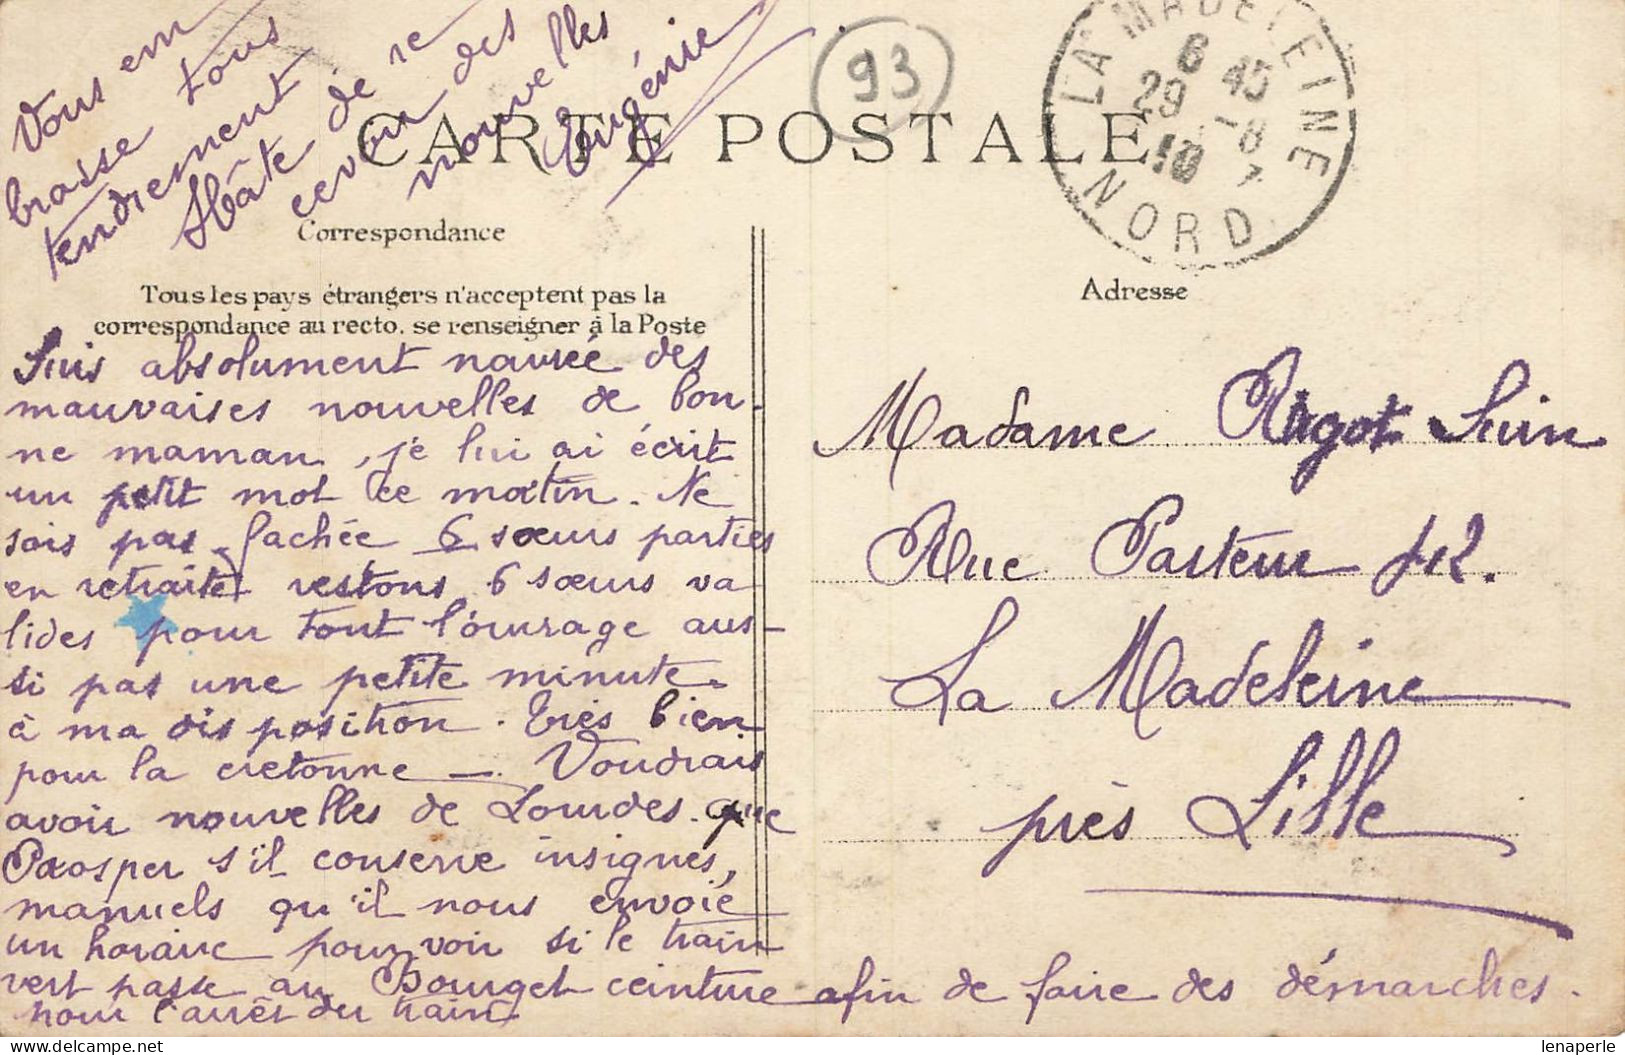 Vous em
brasse tous
tendrement
Hâte de re
cevoir des
nouvelles
Eugénie
93
CARTE POSTALE
LA MADELEINE
6 45
29 -8
10
NORD
Correspondance
Tous les pays étrangers n'acceptent pas la
correspondance au recto. se renseigner à la Poste
Adresse
Suis absolument navrée des
mauvaises nouvelles de bon-
ne maman, je lui ai écrit
un petit mot ce matin. Ne
sois pas fachée 6 sœurs parties
en retraite restons 6 sœurs va
lides pour tout l'ouvrage aus-
si pas une petite minute
à ma disposition. Très bien
pour la cretonne —. Voudrais
avoir nouvelles de Lourdes. que
Prosper s'il conserve insignes,
manuels qu'il nous envoie
un horaire pour voir si le train
vert passe au Bourget ceinture afin de faire des démarches.
pour l'arrêt du train
Madame Argot Suin
Rue Pasteur 42.
La Madeleine
près Lille
lenaperle